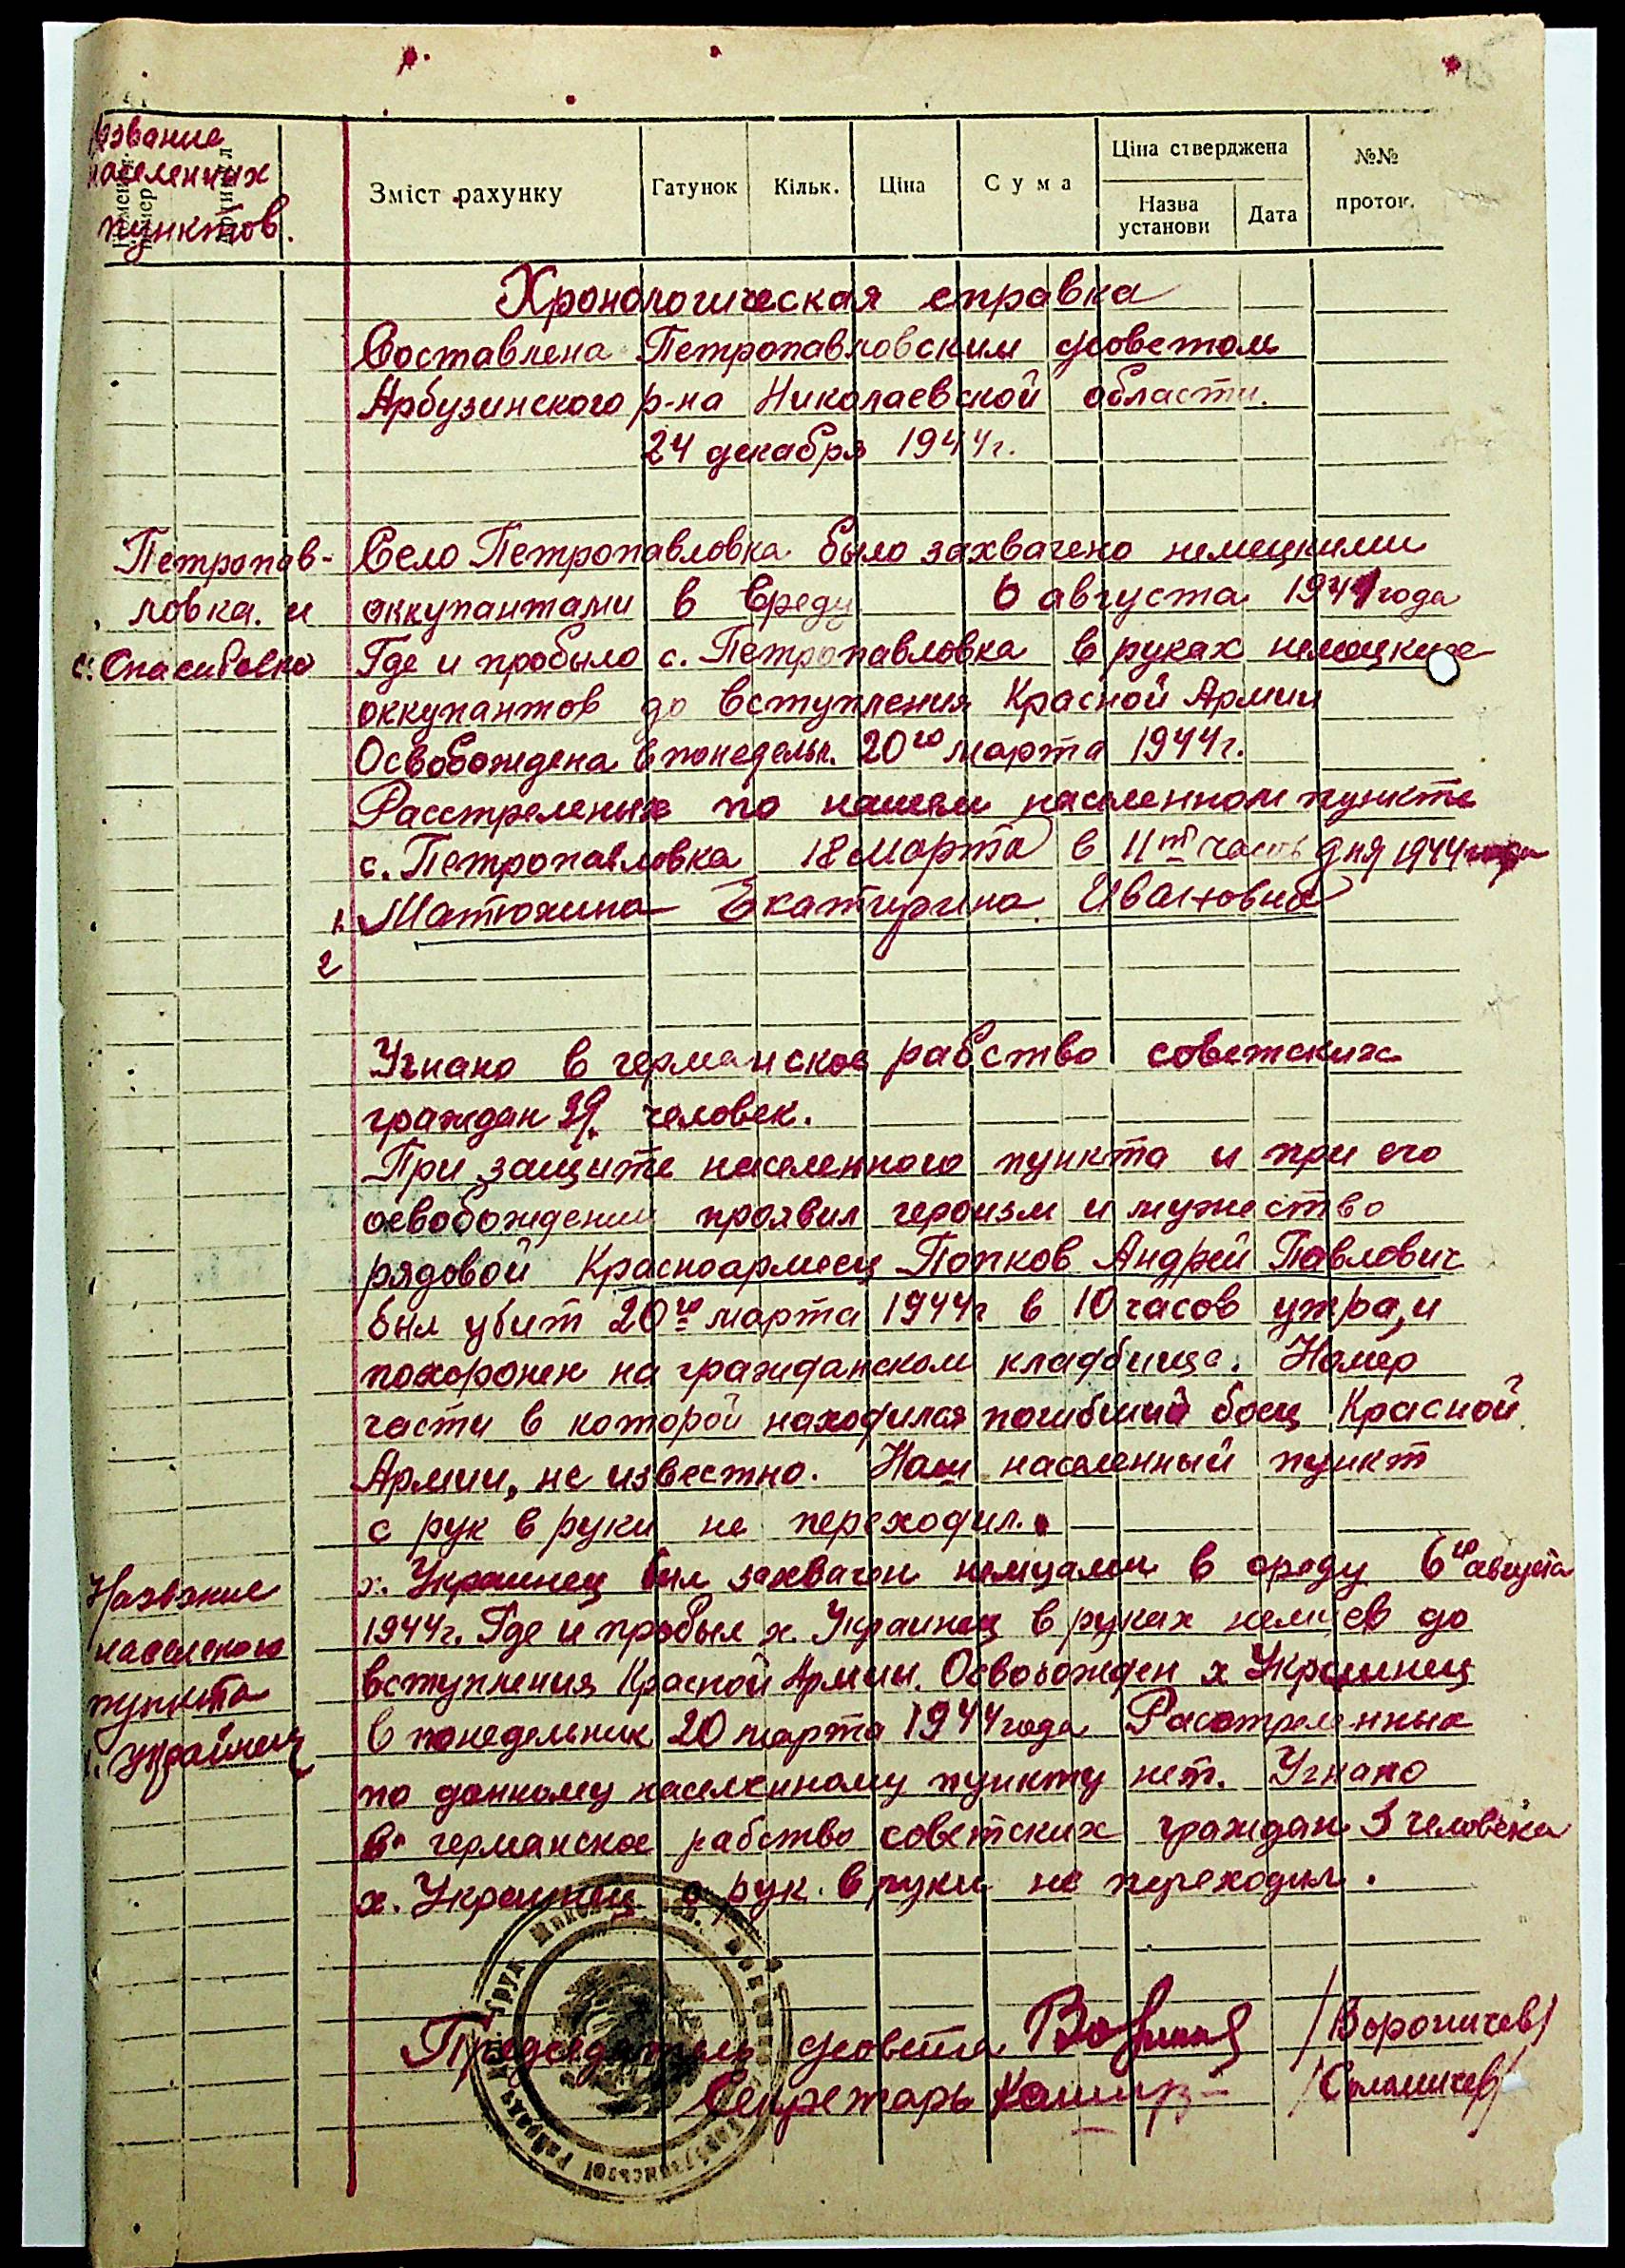 Название
населенных
пунктов.
Зміст рахунку
Гатунок
Кільк.
Ціна
Сума
Ціна стверджена
Назва
установи
Дата
№№
проток.
Хронологическая справка
Составлена Петропавловским с/советом
Арбузинского р-на Николаевской области.
24 декабря 1944г.
Петропав-
ловка. и
с. Спасибовка
Село Петропавловка было захвачено немецкими
оккупантами в среду 6 августа 1941 года
Где и пробыло с. Петропавловка в руках немецких
оккупантов до вступления Красной Армии
Освобождена в понедельн. 20го марта 1944г.
Расстреленые по нашем населенном пункте
с. Петропавловка 18 марта в 11ть часов дня 1944 года
1. Матюхина Екатирина Ивановна
2
Угнано в германское рабство советских
граждан 39. человек.
При защите населенного пункта и при его
освобождении проявил героизм и мужество
рядовой Красноармеец Попков Андрей Павлович
был убит 20го марта 1944г в 10 часов утра, и
похоронен на гражданском кладбище. Номер
части в которой находился погибший боец Красной
Армии, не известно. Наш населенный пункт
с рук в руки не переходил.
Название
населеного
пункта
х. Украинец
х. Украинец был захвачен немцами в среду 6го августа
1944г. Где и пробыл х. Украинец в руках немцев до
вступления Красной Армии. Освобожден х Украинец
в понедельник 20 марта 1944 года Расстреленных
по данному населеному пункту нет. Угнано
в германское рабство советских граждан 3 человека
х. Украинец с рук в руки не переходил.
Председатель с/совета /Вороничев/
Секретарь